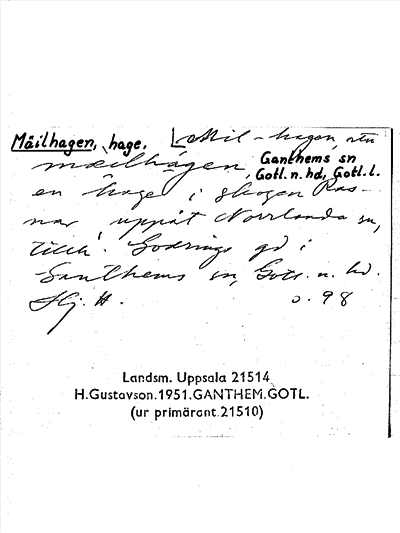 Mäilhagen, hage. Mil-hagen,
mæilhāgen, Ganthems sn
Gotl. n. hd, Gotl. l.
en hage i skogen
nar uppåt Norrlanda sn,
tillh. Godrings gd i
Ganthems sn, Gotl. n. hd.
s. 98
Landsm. Uppsala 21514
H.Gustavson.1951.GANTHEM.GOTL.
(ur primärant.21510)